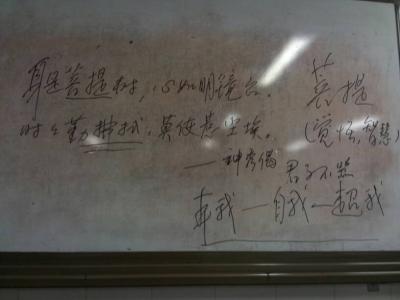 身是菩提树，心如明镜台。
时々勤拂拭，莫使惹尘埃。
——神秀偈
菩提
(觉悟，智慧)
君子不器
本我—自我—超我